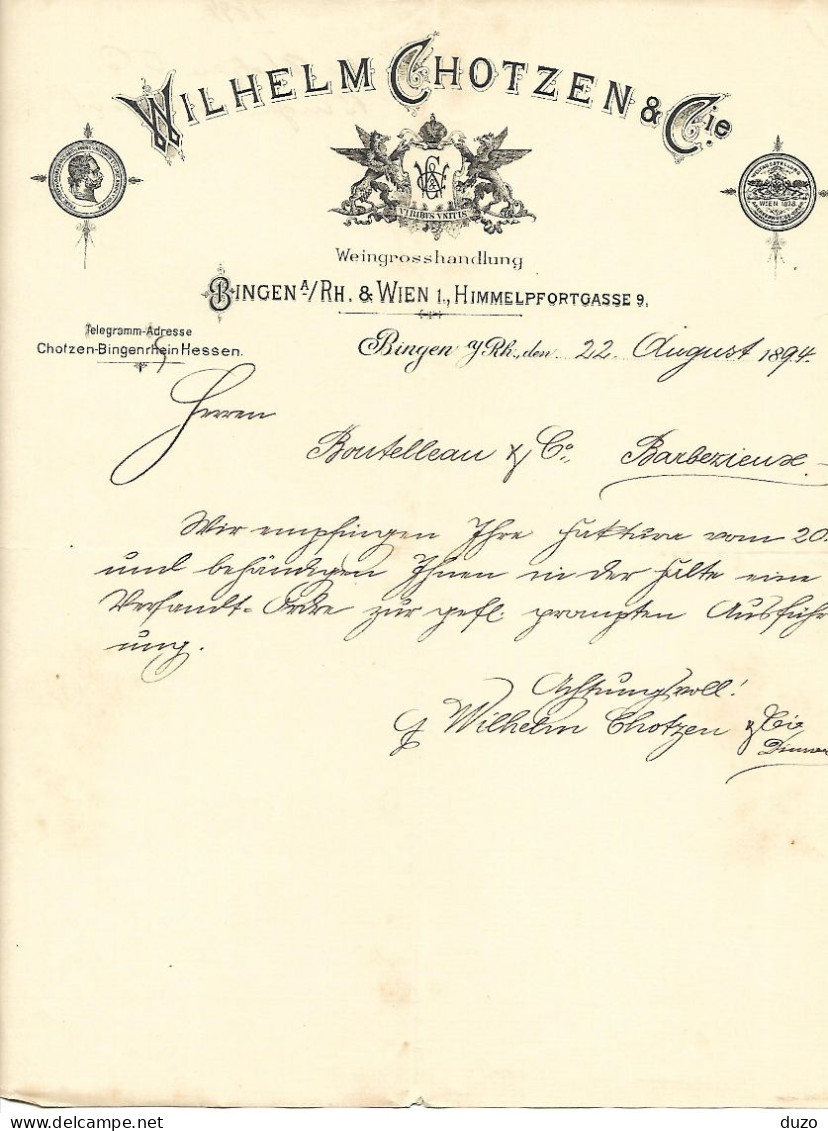 WILHELM CHOTZEN & Cie
VIRIBUS UNITIS
WIEN 1873
Weingrosshandlung
BINGEN A/RH. & WIEN 1., HIMMELPFORTGASSE 9.
Telegramm-Adresse
Chotzen-BingenrheinHessen.
Bingen a/Rh., den 22. August 1894.
Herren
Boutelleau & Co., Barbezieux.
Wir empfingen Ihre Faktura vom 20.
und behändigen Ihnen in der Falte eine
Versandt-Ordre zur gefl. prompten Ausführ
ung.
Achtungsvoll!
Wilhelm Chotzen & Cie
duzo